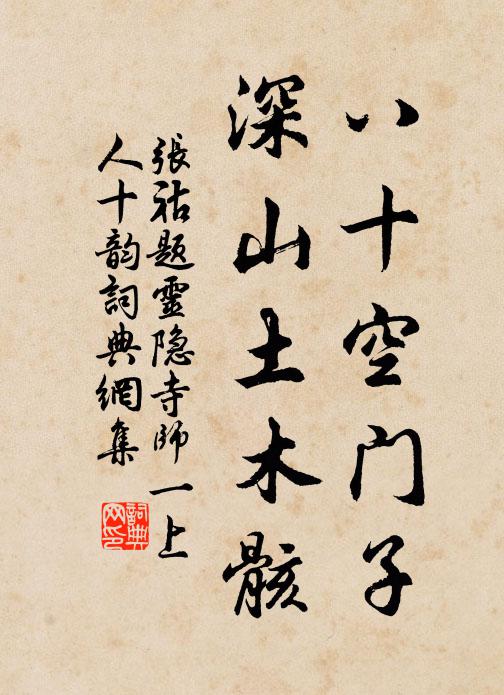 八十空门子
深山土木骸
張祜題靈隐寺師一上
人十韵詞典網集
詞典网印